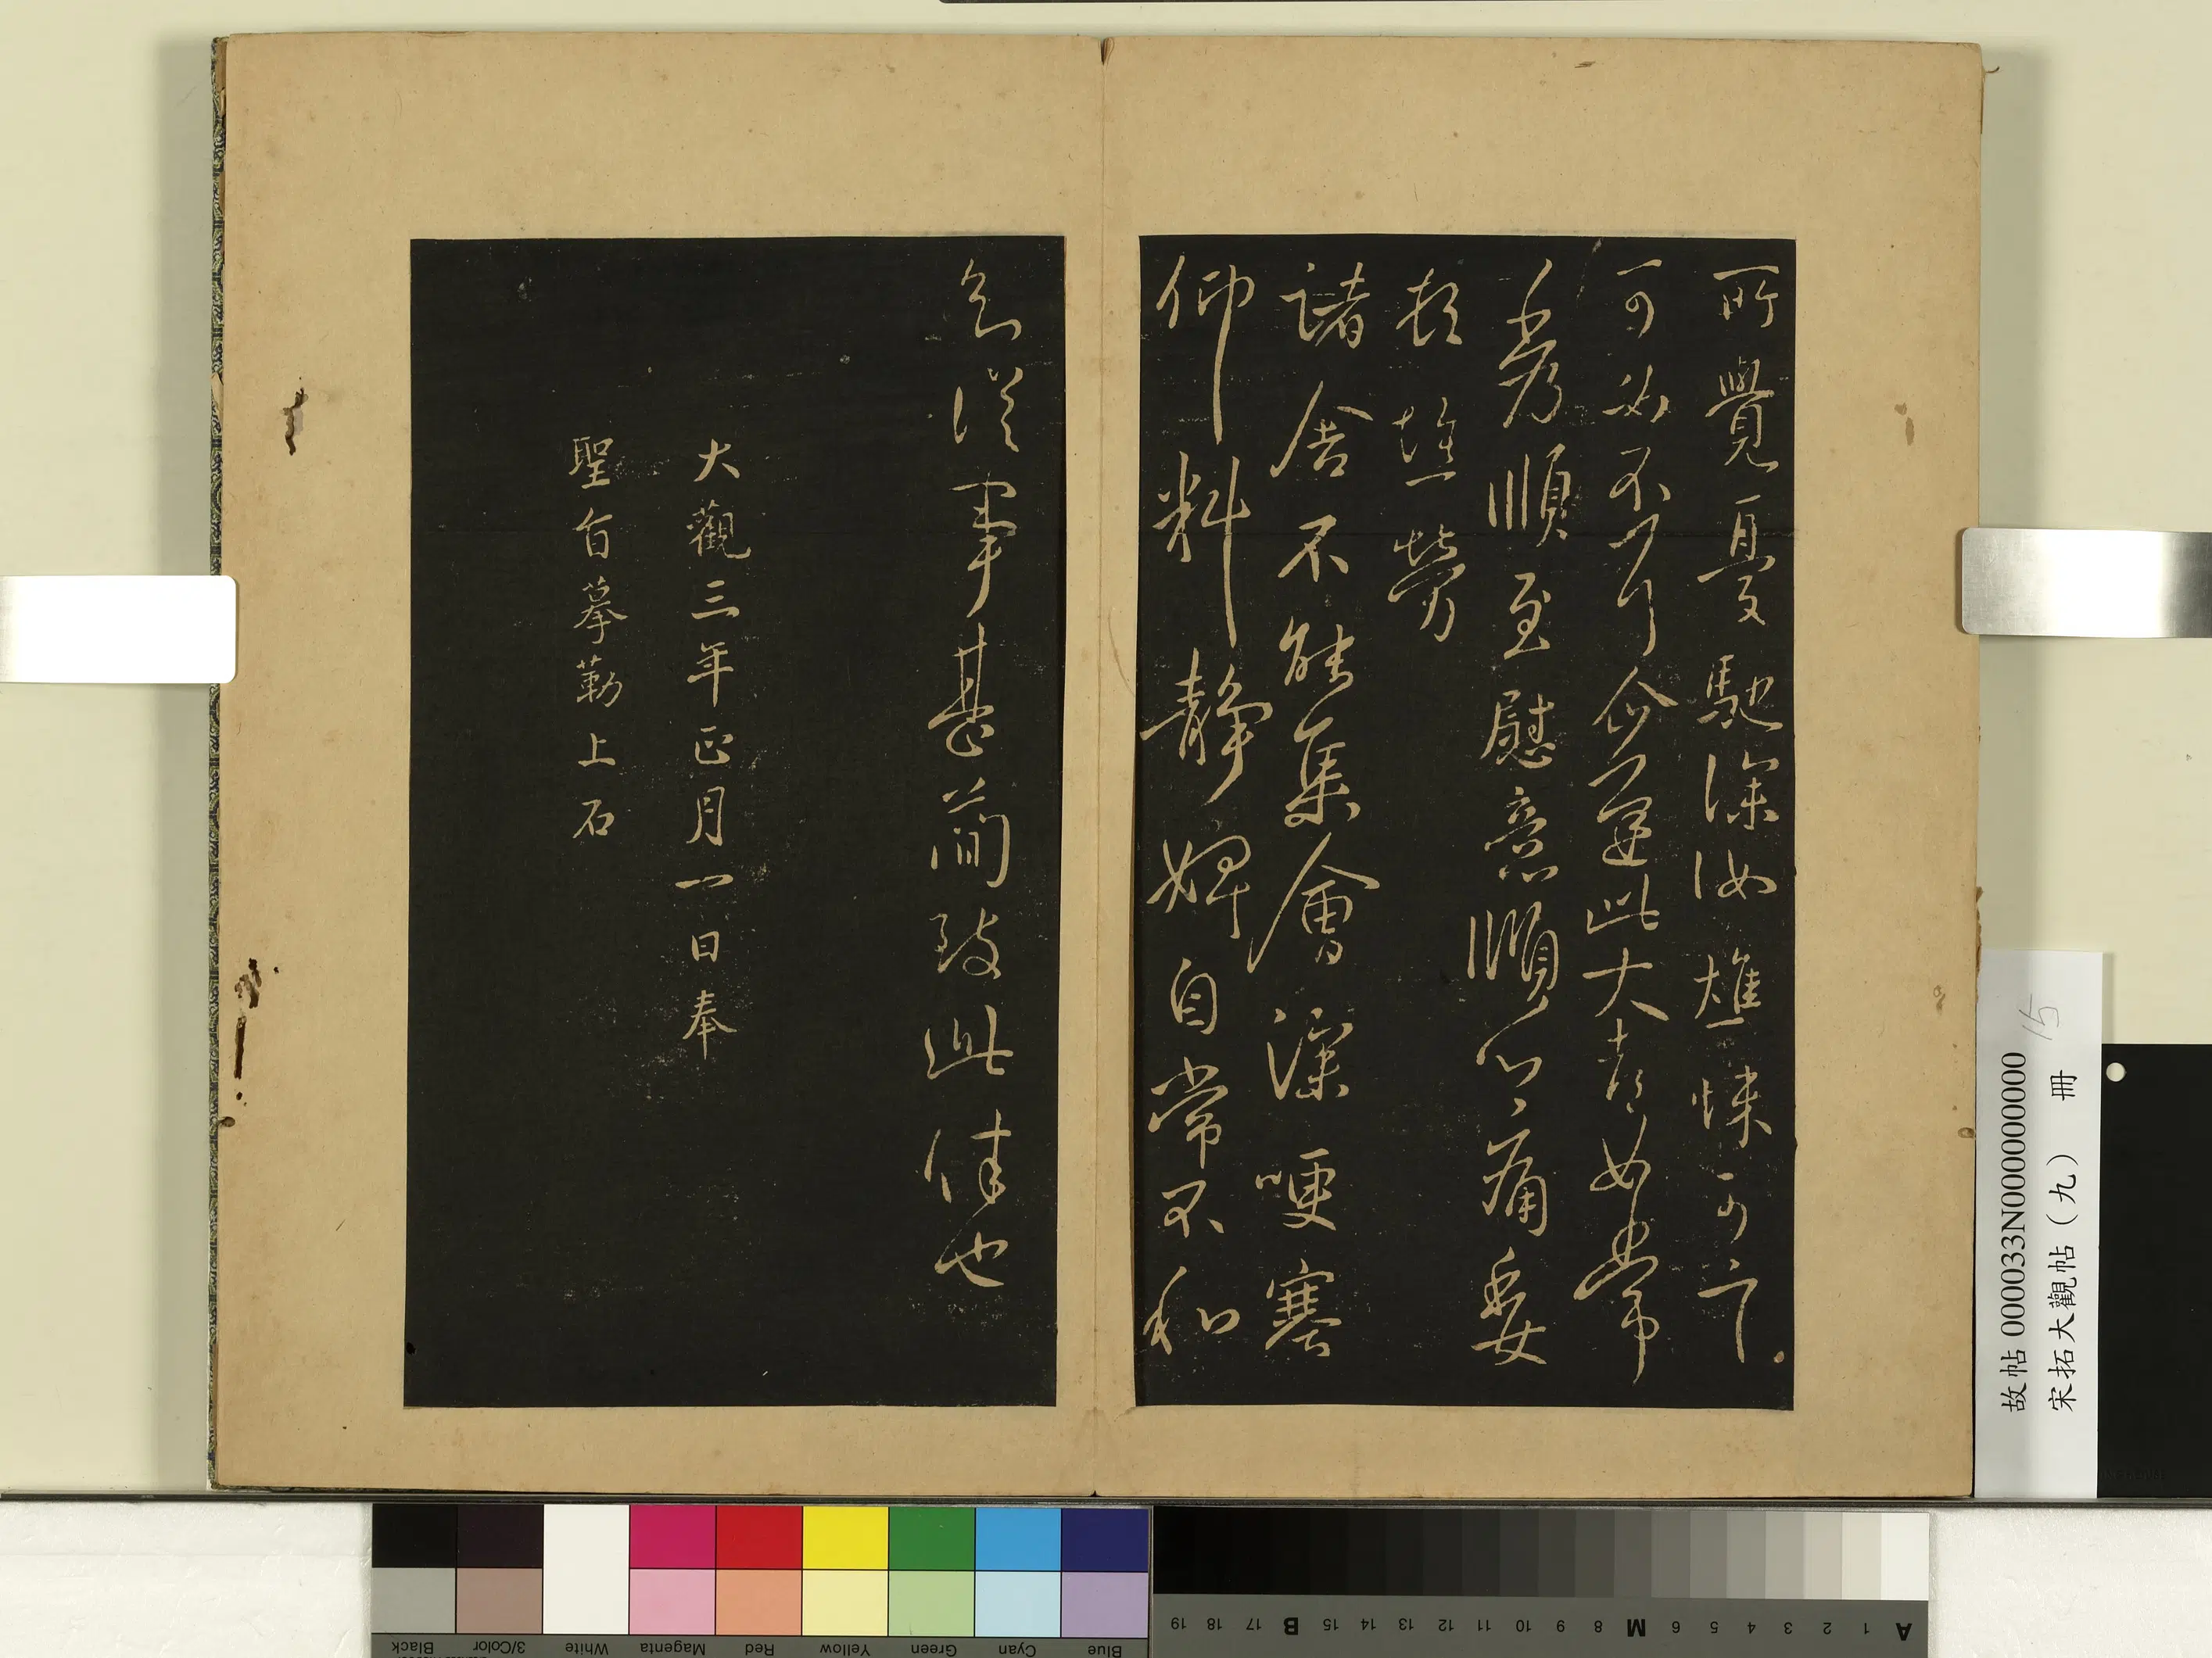 所覺憂馳深汝燋悚可言
可必不可今遣此大都如常
秀順至慰意順心痛委
頓燋勞
諸舍不能集會深哽塞
仰料靜婢自當不和
知從事甚簡致此佳也
大觀三年正月一日奉
聖旨摹勒上石
故帖 000033N000000000
宋拓大觀帖（九） 冊
15
Black 3/Color White Magenta Red Yellow Green Cyan Blue
A 1 2 3 4 5 6 M 8 9 10 11 12 13 14 15 B 17 18 19